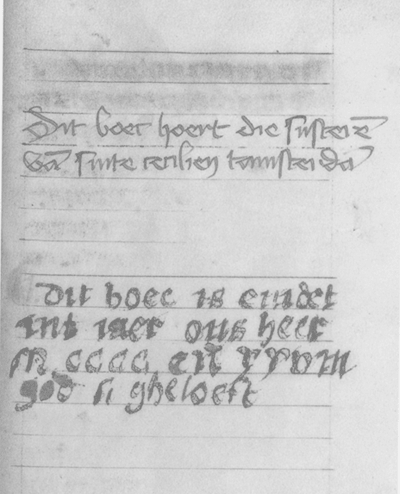 Dit boec hoert die susterē
vā sinte cecilien tamsterdā
dit boec is eindet
int iaer ons heer
M cccc eñ xxviii
god si gheloeft